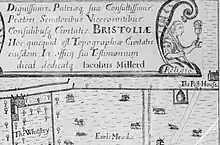 Dignissimis, Patriæq suæ Consultissimis
Pretori Senatoribus Vicecomitibus
Consulibusq Civitatis BRISTOLLÆ
Hoc quicquid est Topographiæ Civitatis
eiusdem In officij sui Testimonium
dicat dedicatq Iacobus Millerd
Religio
The Pest House
The Whitstry
Earles Mead